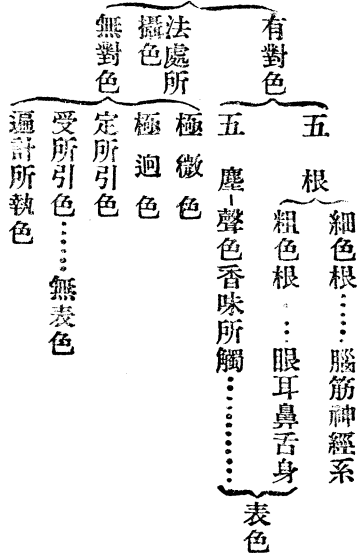 有對色
五根
細色根……腦筋神經系
粗色根……眼耳鼻舌身
五塵-聲色香味所觸…………
表色
法處所攝色
無對色
極微色
極迥色
定所引色
受所引色……無表色
遍計所執色